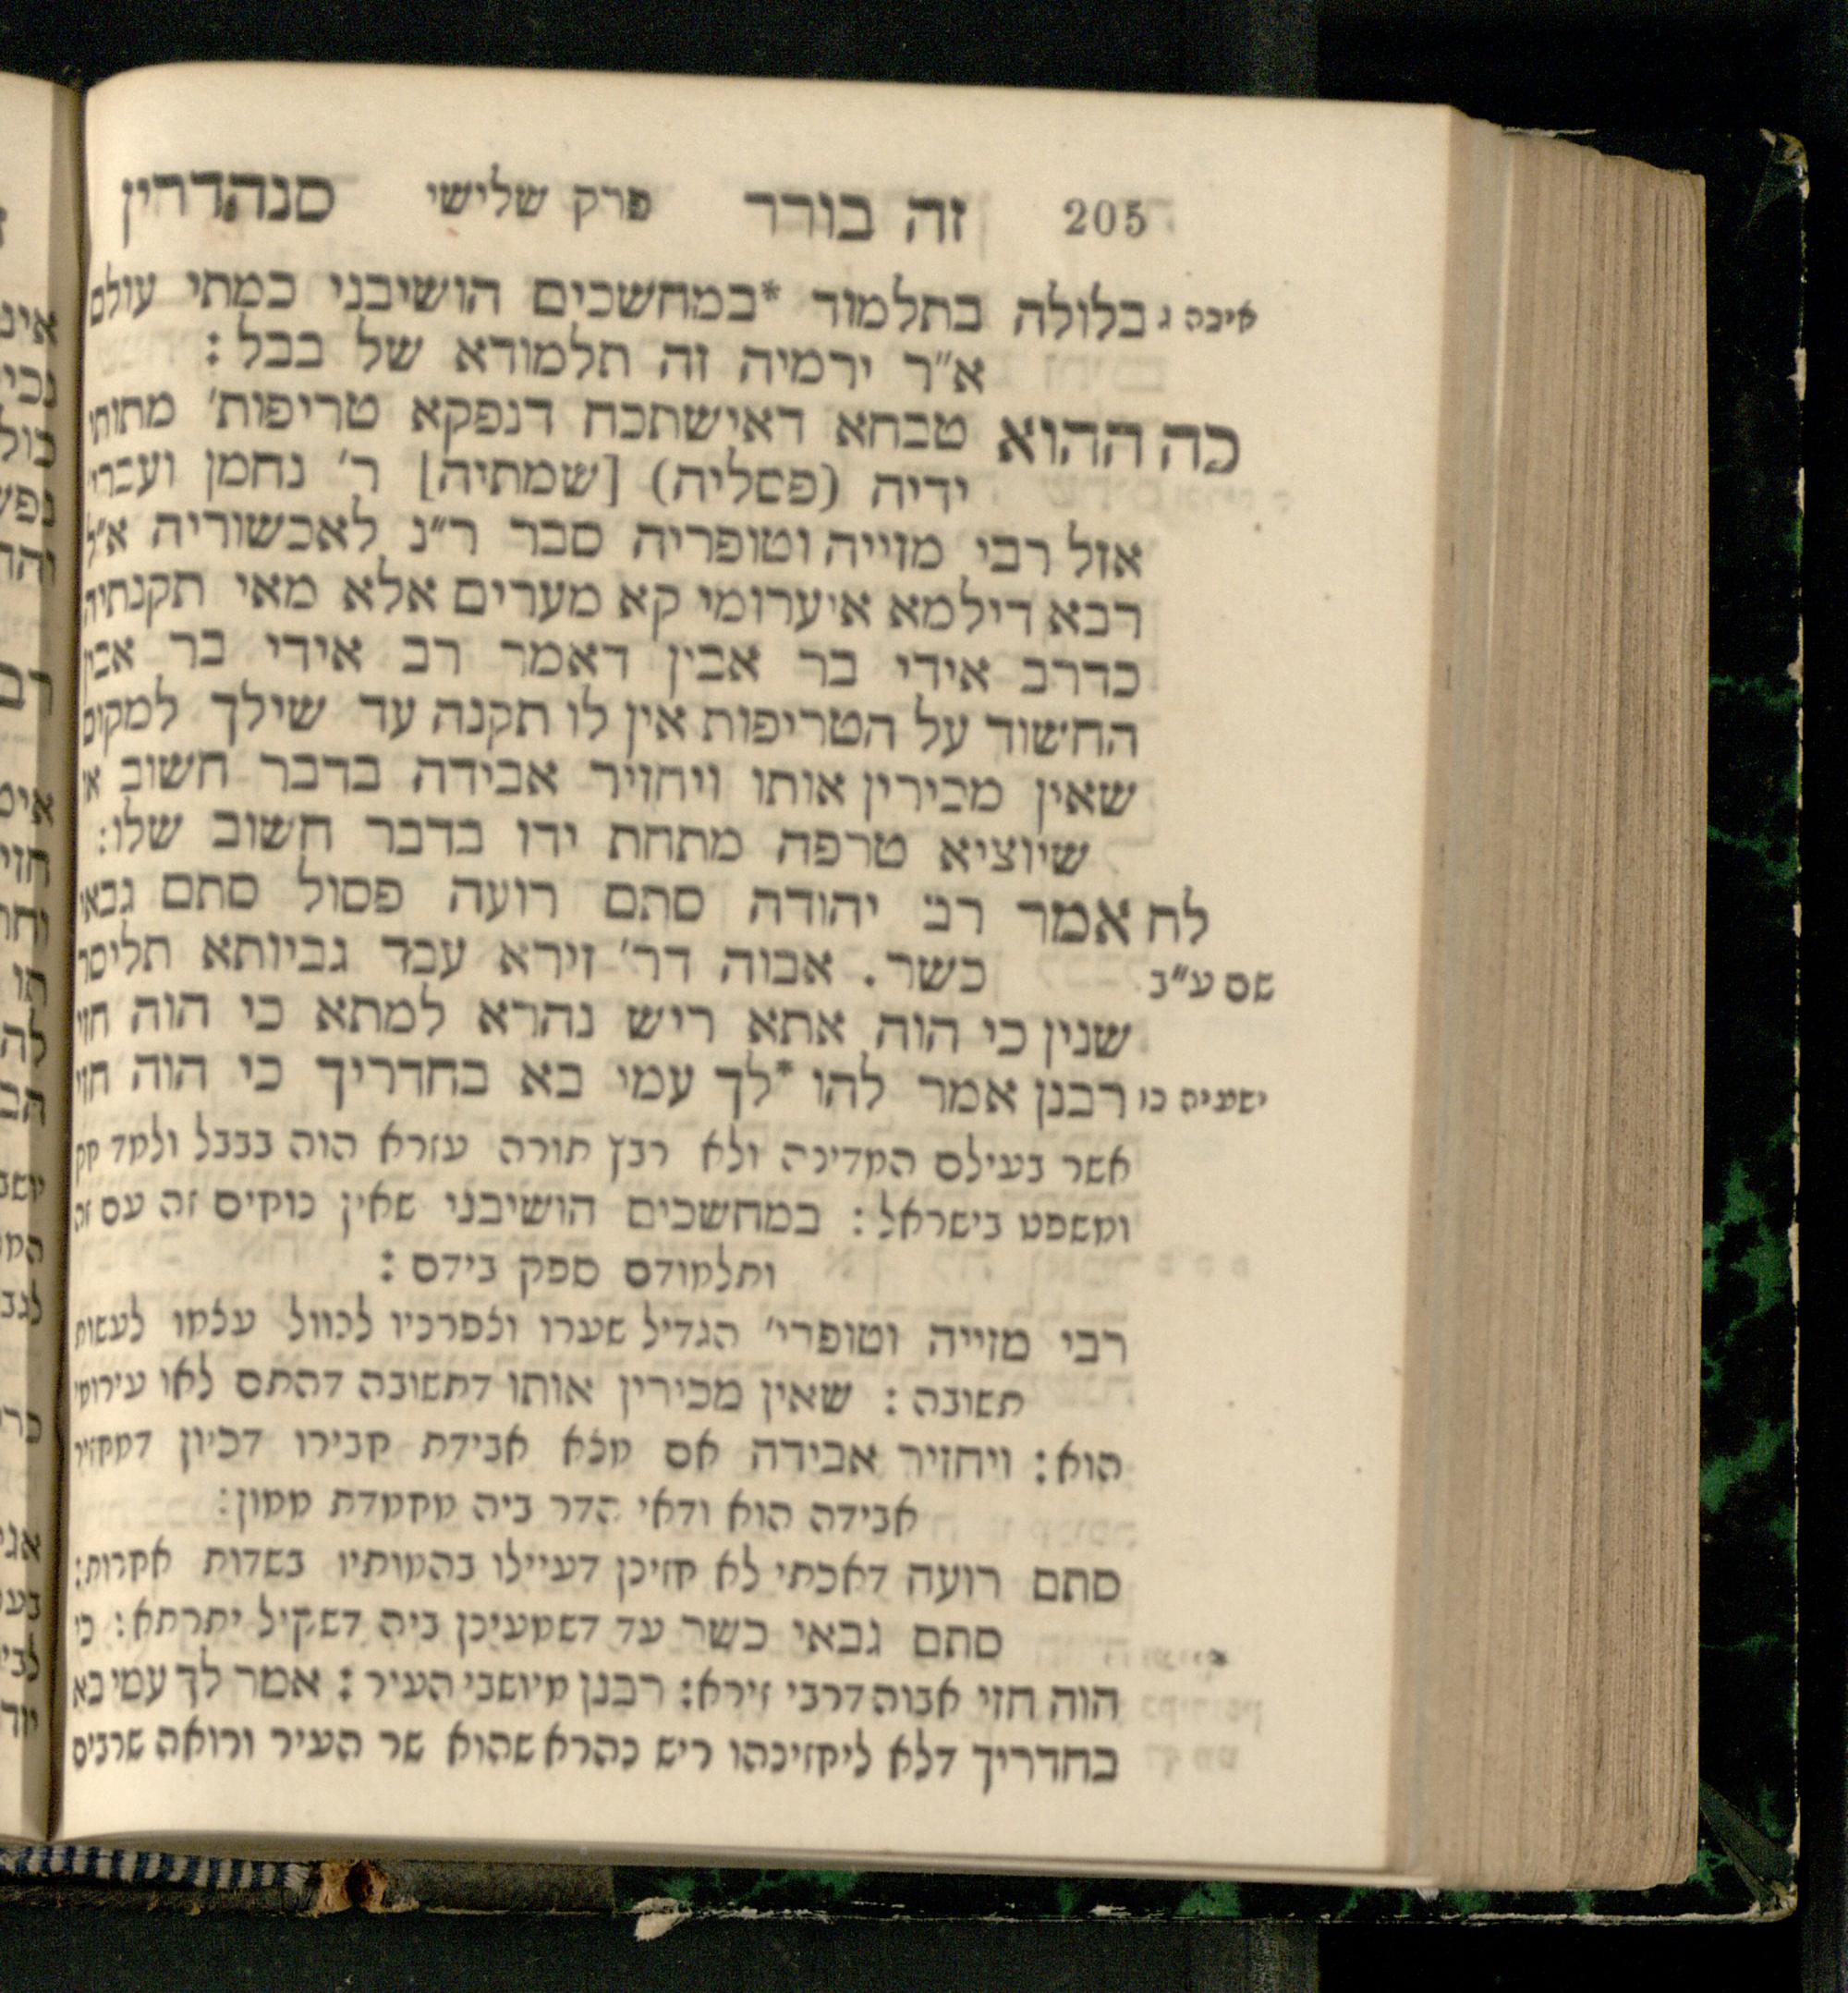 205 זה בורר פרק שלישי סנהדרין
איכה ג בלולה בתלמוד *במחשכים הושיבני כמתי עולם
א״ר ירמיה זה תלמודא של בבל :
כה ההוא טבחא דאישתכח דנפקא טריפות׳ מתותי
ידיה (פסליה) [שמתיה] ר׳ נחמן ועבריי
אזל רבי מזייה וטופריה סבר ר״נ לאכשוריה א״ל
רבא דילמא איערומי קא מערים אלא מאי תקנתיה
כדרב אידי בר אבין דאמר רב אידי בר אבין
החשוד על הטריפות אין לו תקנה עד שילך למקום
שאין מכירין אותו ויחזיר אבידה בדבר חשוב או
שיוציא טרפה מתחת ידו בדבר חשוב שלו:
לח אמר רב יהודה סתם רועה פסול סתם גבאי
שם ע״ב כשר. אבוה דר׳ זירא עבד גביותא תליסר
שנין כי הוה אתא ריש נהרא למתא כי הוה חזי
ישעיה כו רבנן אמר להו *לך עמי בא בחדריך כי הוה חזי
אשר בעילם המדינה ולא רבץ תורה עזרא הוה בבבל ולמד חק
ומשפט בישראל : במחשכים הושיבני שאין נוחים זה עם זה
ותלמודם ספק בידם :
רבי מזייה וטופרי׳ הגדיל שערו וצפרניו לנוול עצמו לעשות
תשובה : שאין מכירין אותו דתשובה דהתם לאו עירומי
הוא: ויחזיר אבידה אם מצא אבידת חבירו דכיון דמחזיר
אבידה הוא ודאי הדר ביה מחמדת ממון:
סתם רועה דאכתי לא חזינן דעיילו בהמותיו בשדות אחרות:
סתם גבאי כשר עד דשמעינן ביה דשקיל יתרתא: כי
הוה חזי אבוה דרבי זירא: רבנן מיושבי העיר : אמר לך עמי בא
בחדריך דלא ליחזינהו ריש נהרא שהוא שר העיר ורואה שרבים